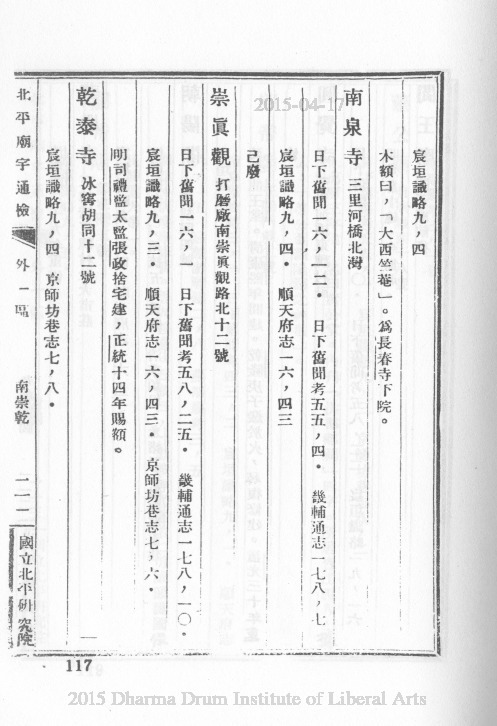 宸垣識略九，四
木額曰，「大西竺菴」。爲長春寺下院。
南泉寺 三里河橋北灣
日下舊聞一六，一二． 日下舊聞考五五，四． 畿輔通志一七八，七
宸垣識略九，四． 順天府志一六，四三
己廢
崇眞觀 打磨廠南崇眞觀路北十二號
日下舊聞一六，一 日下舊聞考五八，二五． 畿輔通志一七八，一〇．
宸垣識略九，三． 順天府志一六，四三． 京師坊巷志七，六．
明司禮監太監張政捨宅建，正統十四年賜額。
乾泰寺 冰窖胡同十二號
宸垣識略九，四 京師坊巷志七，八．
北平廟宇通檢 外一區 南崇乾 一一一 國立北平研究院
117
2015-04-17
2015 Dharma Drum Institute of Liberal Arts